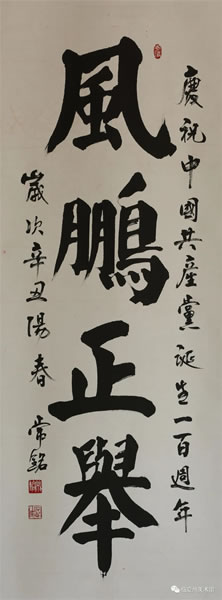 慶祝中國共產黨誕生一百週年
風鵬正舉
歲次辛丑陽春 常銘